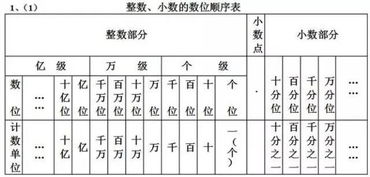 1、（1） 整数、小数的数位顺序表
整数部分 小数点 小数部分
亿级 万级 个级
数位 …… 十亿位 亿位 千万位 百万位 十万位 万位 千位 百位 十位 个位 . 十分位 百分位 千分位 万分位 ……
计数单位 …… 十亿 亿 千万 百万 十万 万 千 百 十 一（个） 十分之一 百分之一 千分之一 万分之一 ……